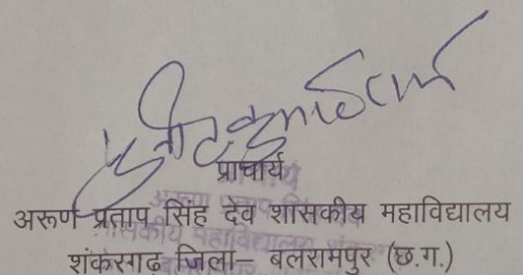 प्राचार्य
अरूण प्रताप सिंह देव शासकीय महाविद्यालय
शंकरगढ़ जिला– बलरामपुर (छ.ग.)